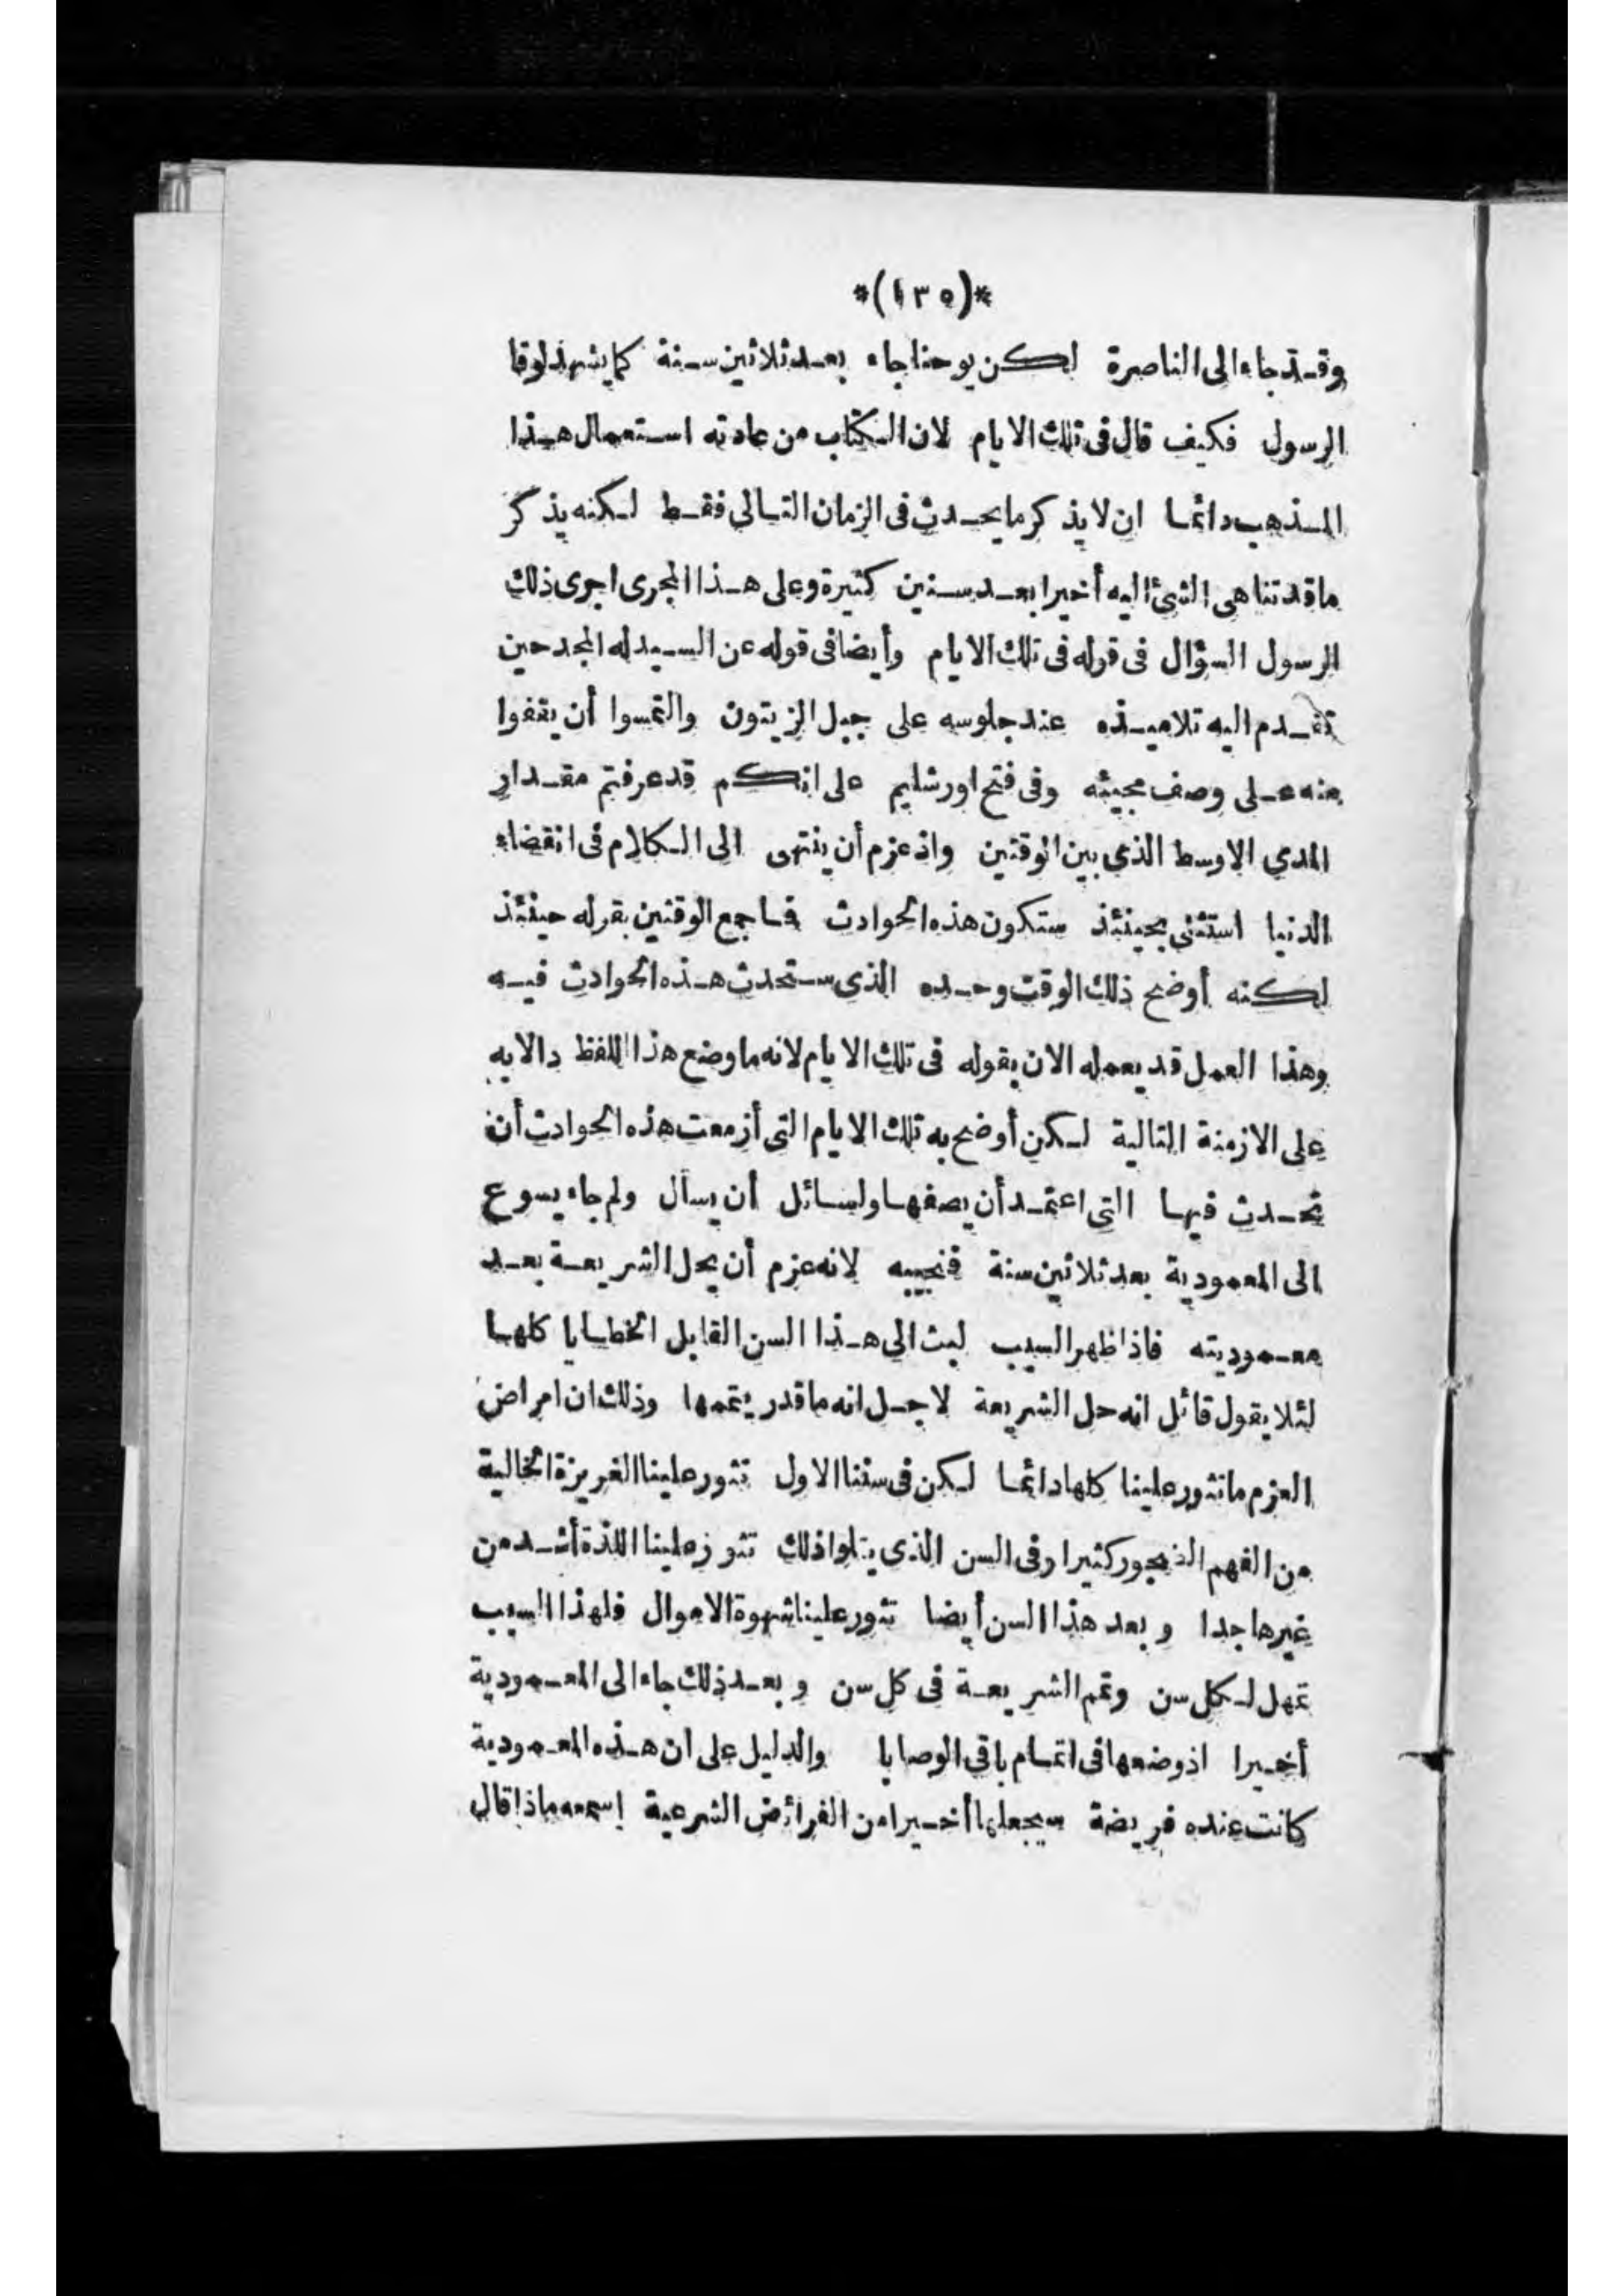 *(١٣٥)*
وقد جاء الى الناصرة لكن يوحنا جاء بعد ثلاثين سنة كما يشهد لوقا
الرسول فكيف قال فى تلك الايام لان الكتاب من عادته استعمال هذا
المذهب دائما ان لا يذكر ما يحدث فى الزمان التالى فقط لكنه يذكر
ما قد تناهى الشئ اليه أخيرا بعد سنين كثيرة وعلى هذا المجرى اجرى ذلك
الرسول السؤال فى قوله فى تلك الايام وأيضا فى قوله عن السيد له المجد حين
تقدم اليه تلاميذه عند جلوسه على جبل الزيتون والتمسوا أن يقفوا
منه على وصف مجيئه وفى فتح اورشليم على انكم قد عرفتم مقدار
المدى الاوسط الذى بين الوقتين واذ عزم أن ينتهى الى الكلام فى انقضاء
الدنيا استثنى بحينئذ ستكون هذه الحوادث فما جمع الوقتين بقوله حينئذ
لكنه أوضح ذلك الوقت وحده الذى ستحدث هذه الحوادث فيه
وهذا العمل قد يعمله الان بقوله فى تلك الايام لانه ما وضع هذا اللفظ دالا به
على الازمنة التالية لكن أوضح به تلك الايام التى أزمعت هذه الحوادث أن
تحدث فيها التى اعتمد أن يصفها ولسائل أن يسأل ولم جاء يسوع
الى المعمودية بعد ثلاثين سنة فنجيبه لانه عزم أن يحل الشريعة بعد
معموديته فاذا ظهر السبب لبث الى هذا السن القابل الخطايا كلها
لئلا يقول قائل انه حل الشريعة لاجل انه ما قدر يتممها وذلك ان امراض
العزم ما تثور علينا كلها دائما لكن فى سننا الاول تثور علينا الغريزة الخالية
من الفهم كثيرا وفى السن الذى يتلوا ذلك تثور علينا اللذة أشد من
غيرها جدا وبعد هذا السن أيضا تثور علينا شهوة الاموال فلهذا السبب
تمهل لكل سن وتمم الشريعة فى كل سن وبعد ذلك جاء الى المعمودية
أخيرا اذ وضعها فى اتمام باقى الوصايا والدليل على ان هذه المعمودية
كانت عنده فريضة سيجعلها أخيرا من الفرائض الشرعية اسمعه ماذا قال